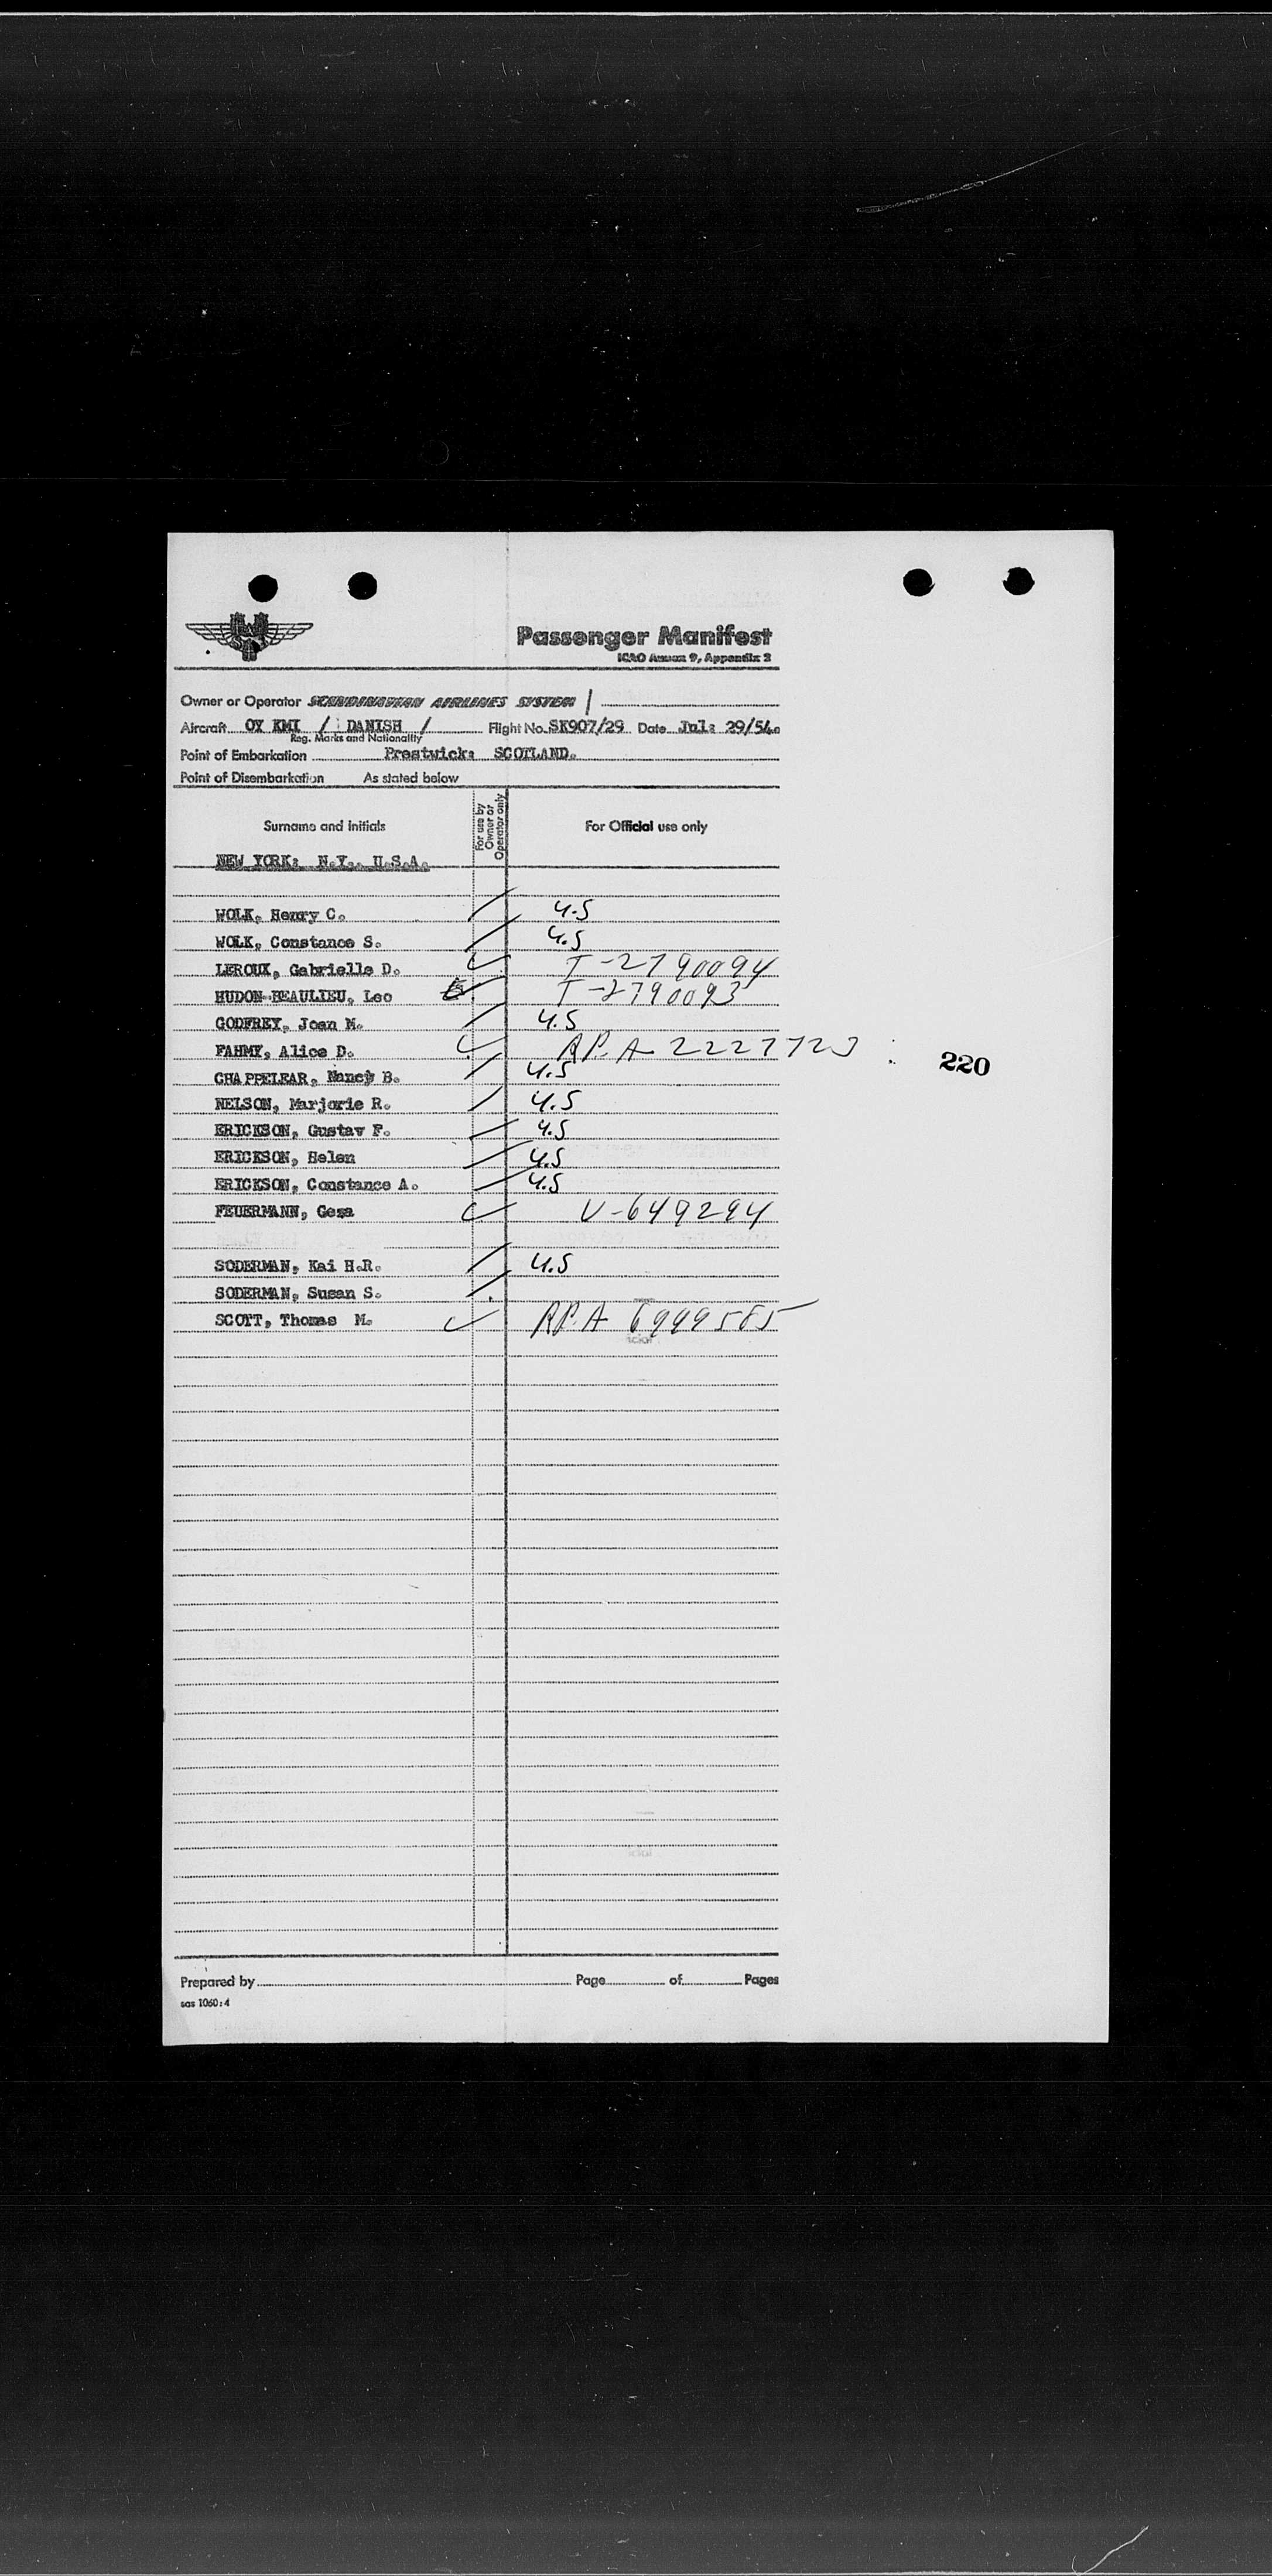 Passenger Manifest
ICAO Annex 9, Appendix 2
Owner or Operator SCANDINAVIAN AIRLINES SYSTEM /
Aircraft OY KMI / DANISH / Flight No. SK907/29 Date Jul: 29/54.
Reg. Marks and Nationality
Point of Embarkation Prestwick: SCOTLAND.
Point of Disembarkation As stated below
Surname and initials For use by Owner or Operator only For Official use only
NEW YORK: N.Y. U.S.A.
WOLK, Henry C. U.S
WOLK, Constance S. U.S
LEROUX, Gabrielle D. T-2790094
HUDON-BEAULIEU, Leo T-2790093
GODFREY, Joan M. U.S
FAHMY, Alice D. RP. A- 2227723
220
CHAPPELEAR, Nancy B. U.S
NELSON, Marjorie R. U.S
ERICKSON, Gustav F. U.S
ERICKSON, Helen U.S
ERICKSON, Constance A. U.S
FEUERMANN, Geza V-649294
SODERMAN, Kai H.R. U.S
SODERMAN, Susan S.
SCOTT, Thomas M. RP. A 6999585
Prepared by Page of Pages
sas 1060:4